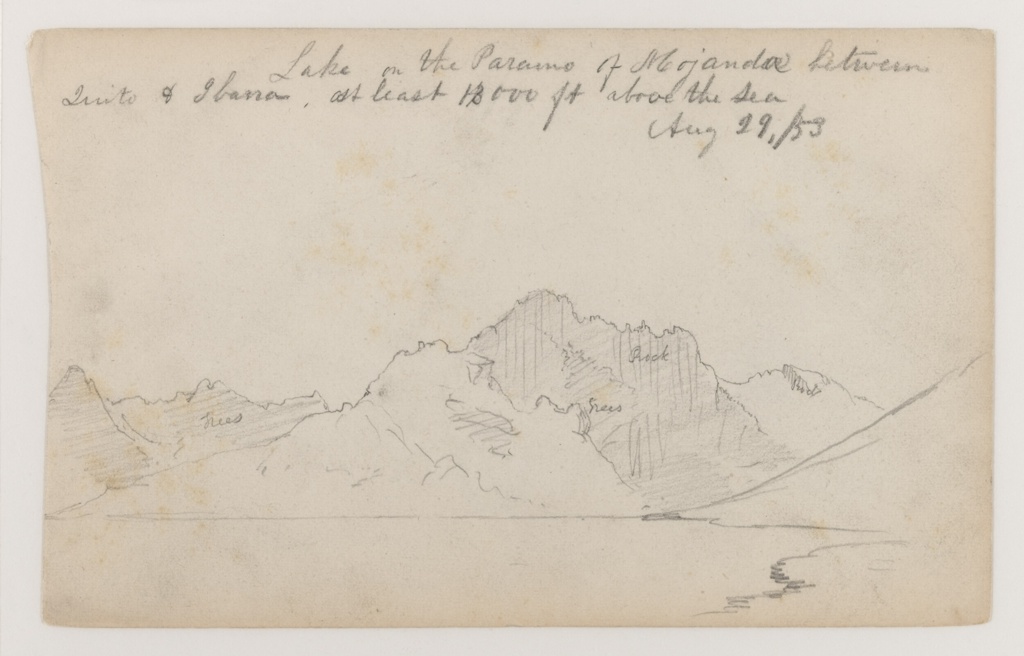 Lake on the Paramo of Mojanda between
Quito & Ibarra, at least 13000 ft above the sea
Aug 29, /53
Rock
Trees
Trees
Rock